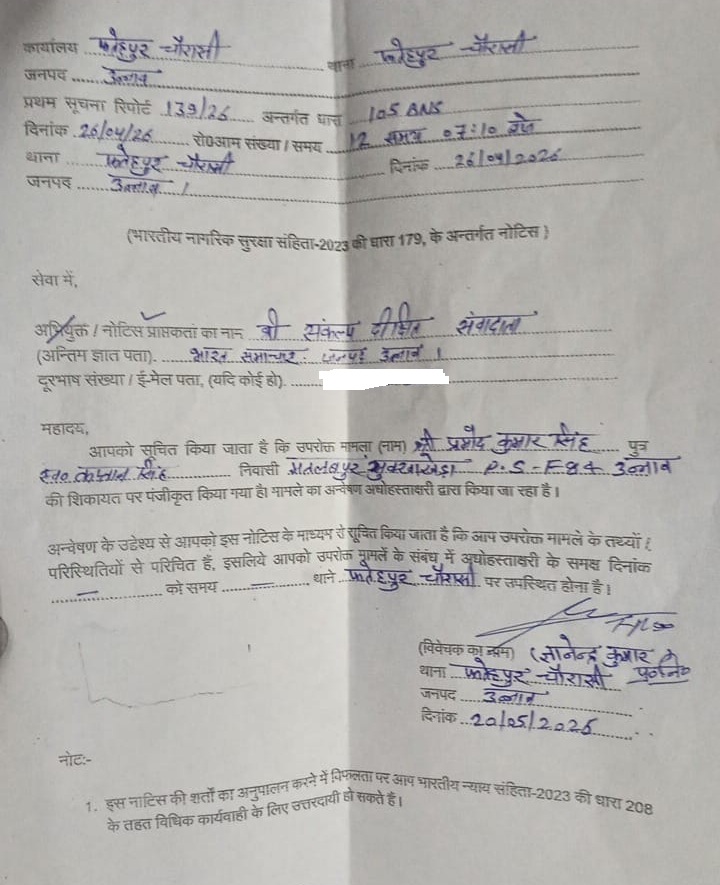 कार्यालय फतेहपुर चौरासी थाना फतेहपुर चौरासी
जनपद उन्नाव
प्रथम सूचना रिपोर्ट 139/26 अन्तर्गत धारा 105 BNS
दिनांक 26/04/26 रो०आम संख्या / समय 12 समय 07:10 बजे
थाना फतेहपुर चौरासी दिनांक 26/04/2026
जनपद उन्नाव।
(भारतीय नागरिक सुरक्षा संहिता-2023 की धारा 179, के अन्तर्गत नोटिस)
सेवा में,
अभियुक्त / नोटिस प्राप्तकर्ता का नाम श्री संकल्प दीक्षित संवादाता
(अन्तिम ज्ञात पता). भारत समाचार जनपद उन्नाव।
दूरभाष संख्या / ई-मेल पता, (यदि कोई हो).
महादय,
आपको सूचित किया जाता है कि उपरोक्त मामला (नाम) श्री प्रमोद कुमार सिंह पुत्र
स्व० कप्तान सिंह निवासी मतलबपुर सुक्खाखेड़ा P.S-F84 उन्नाव
की शिकायत पर पंजीकृत किया गया है। मामले का अन्वेषण अधोहस्ताक्षरी द्वारा किया जा रहा है।
अन्वेषण के उडेश्य से आपको इस नोटिस के माध्यम से सूचित किया जाता है कि आप उपरोक्त मामले के तथ्यों /
परिस्थितियों से परिचित हैं, इसलिये आपको उपरोक्त मामलें के संबंध में अधोहस्ताक्षरी के समक्ष दिनांक
— को समय — थाने फतेहपुर चौरासी पर उपस्थित होना है।
(विवेचक का नाम) (ज्ञानेन्द्र कुमार)
थाना फतेहपुर चौरासी प्र०नि०
जनपद उन्नाव
दिनांक 20/05/2026
नोटः-
1. इस नाटिस की शर्तों का अनुपालन करने में विफलता पर आप भारतीय न्याय संहिता-2023 की धारा 208
के तहत विधिक कार्यवाही के लिए उत्तरदायी हो सकते है।